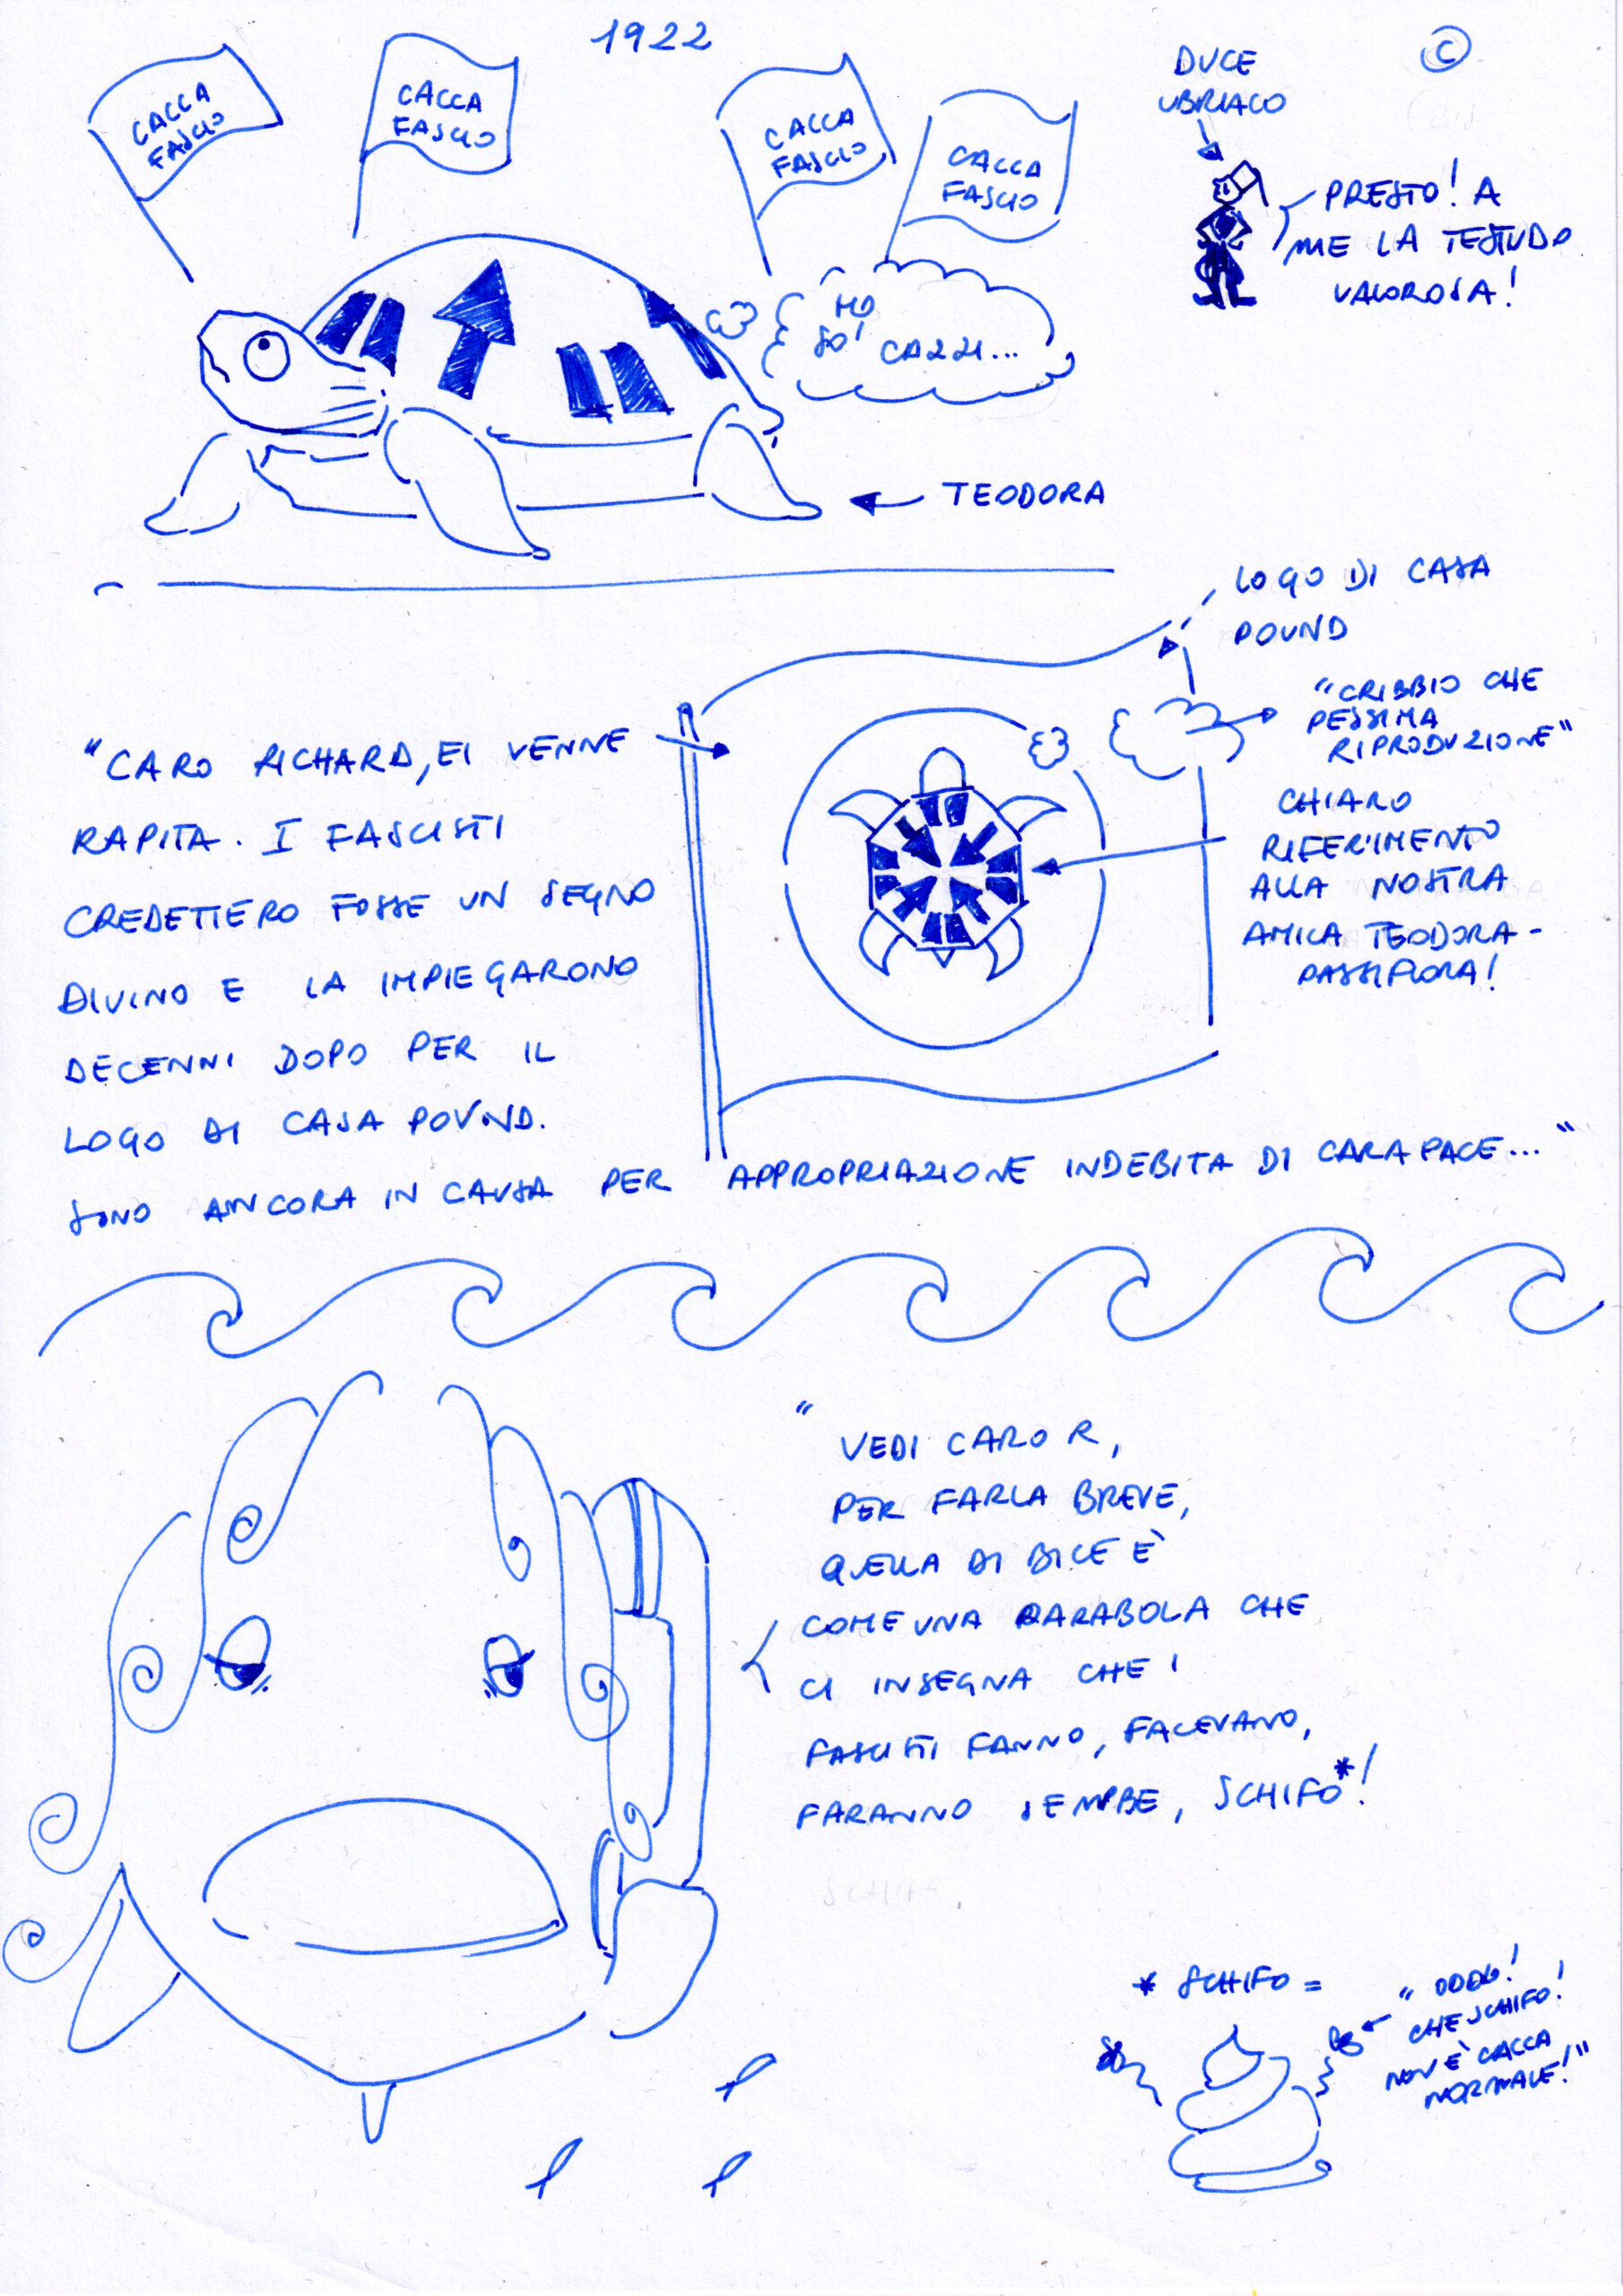 1922
©
CACCA
FASCIO
CACCA
FASCIO
CACCA
FASCIO
CACCA
FASCIO
DUCE
UBRIACO
PRESTO! A
ME LA TESTUDO
VALOROSA!
MO
SO' CAZZI...
TEODORA
LOGO DI CASA
POUND
"CRIBBIO CHE
PESSIMA
RIPRODUZIONE"
CHIARO
RIFERIMENTO
ALLA NOSTRA
AMICA TEODORA-
PASSIFLORA!
"CARO RICHARD, EI VENNE
RAPITA. I FASCISTI
CREDETTERO FOSSE UN SEGNO
DIVINO E LA IMPIEGARONO
DECENNI DOPO PER IL
LOGO DI CASA POUND.
SONO ANCORA IN CAUSA PER APPROPRIAZIONE INDEBITA DI CARAPACE..."
"VEDI CARO R,
PER FARLA BREVE,
QUELLA DI BICE È
COME UNA PARABOLA CHE
CI INSEGNA CHE I
FASCISTI FANNO, FACEVANO,
FARANNO SEMPRE, SCHIFO*!
* SCHIFO =
"ODDIO!
CHE SCHIFO!
NON È CACCA
NORMALE!"